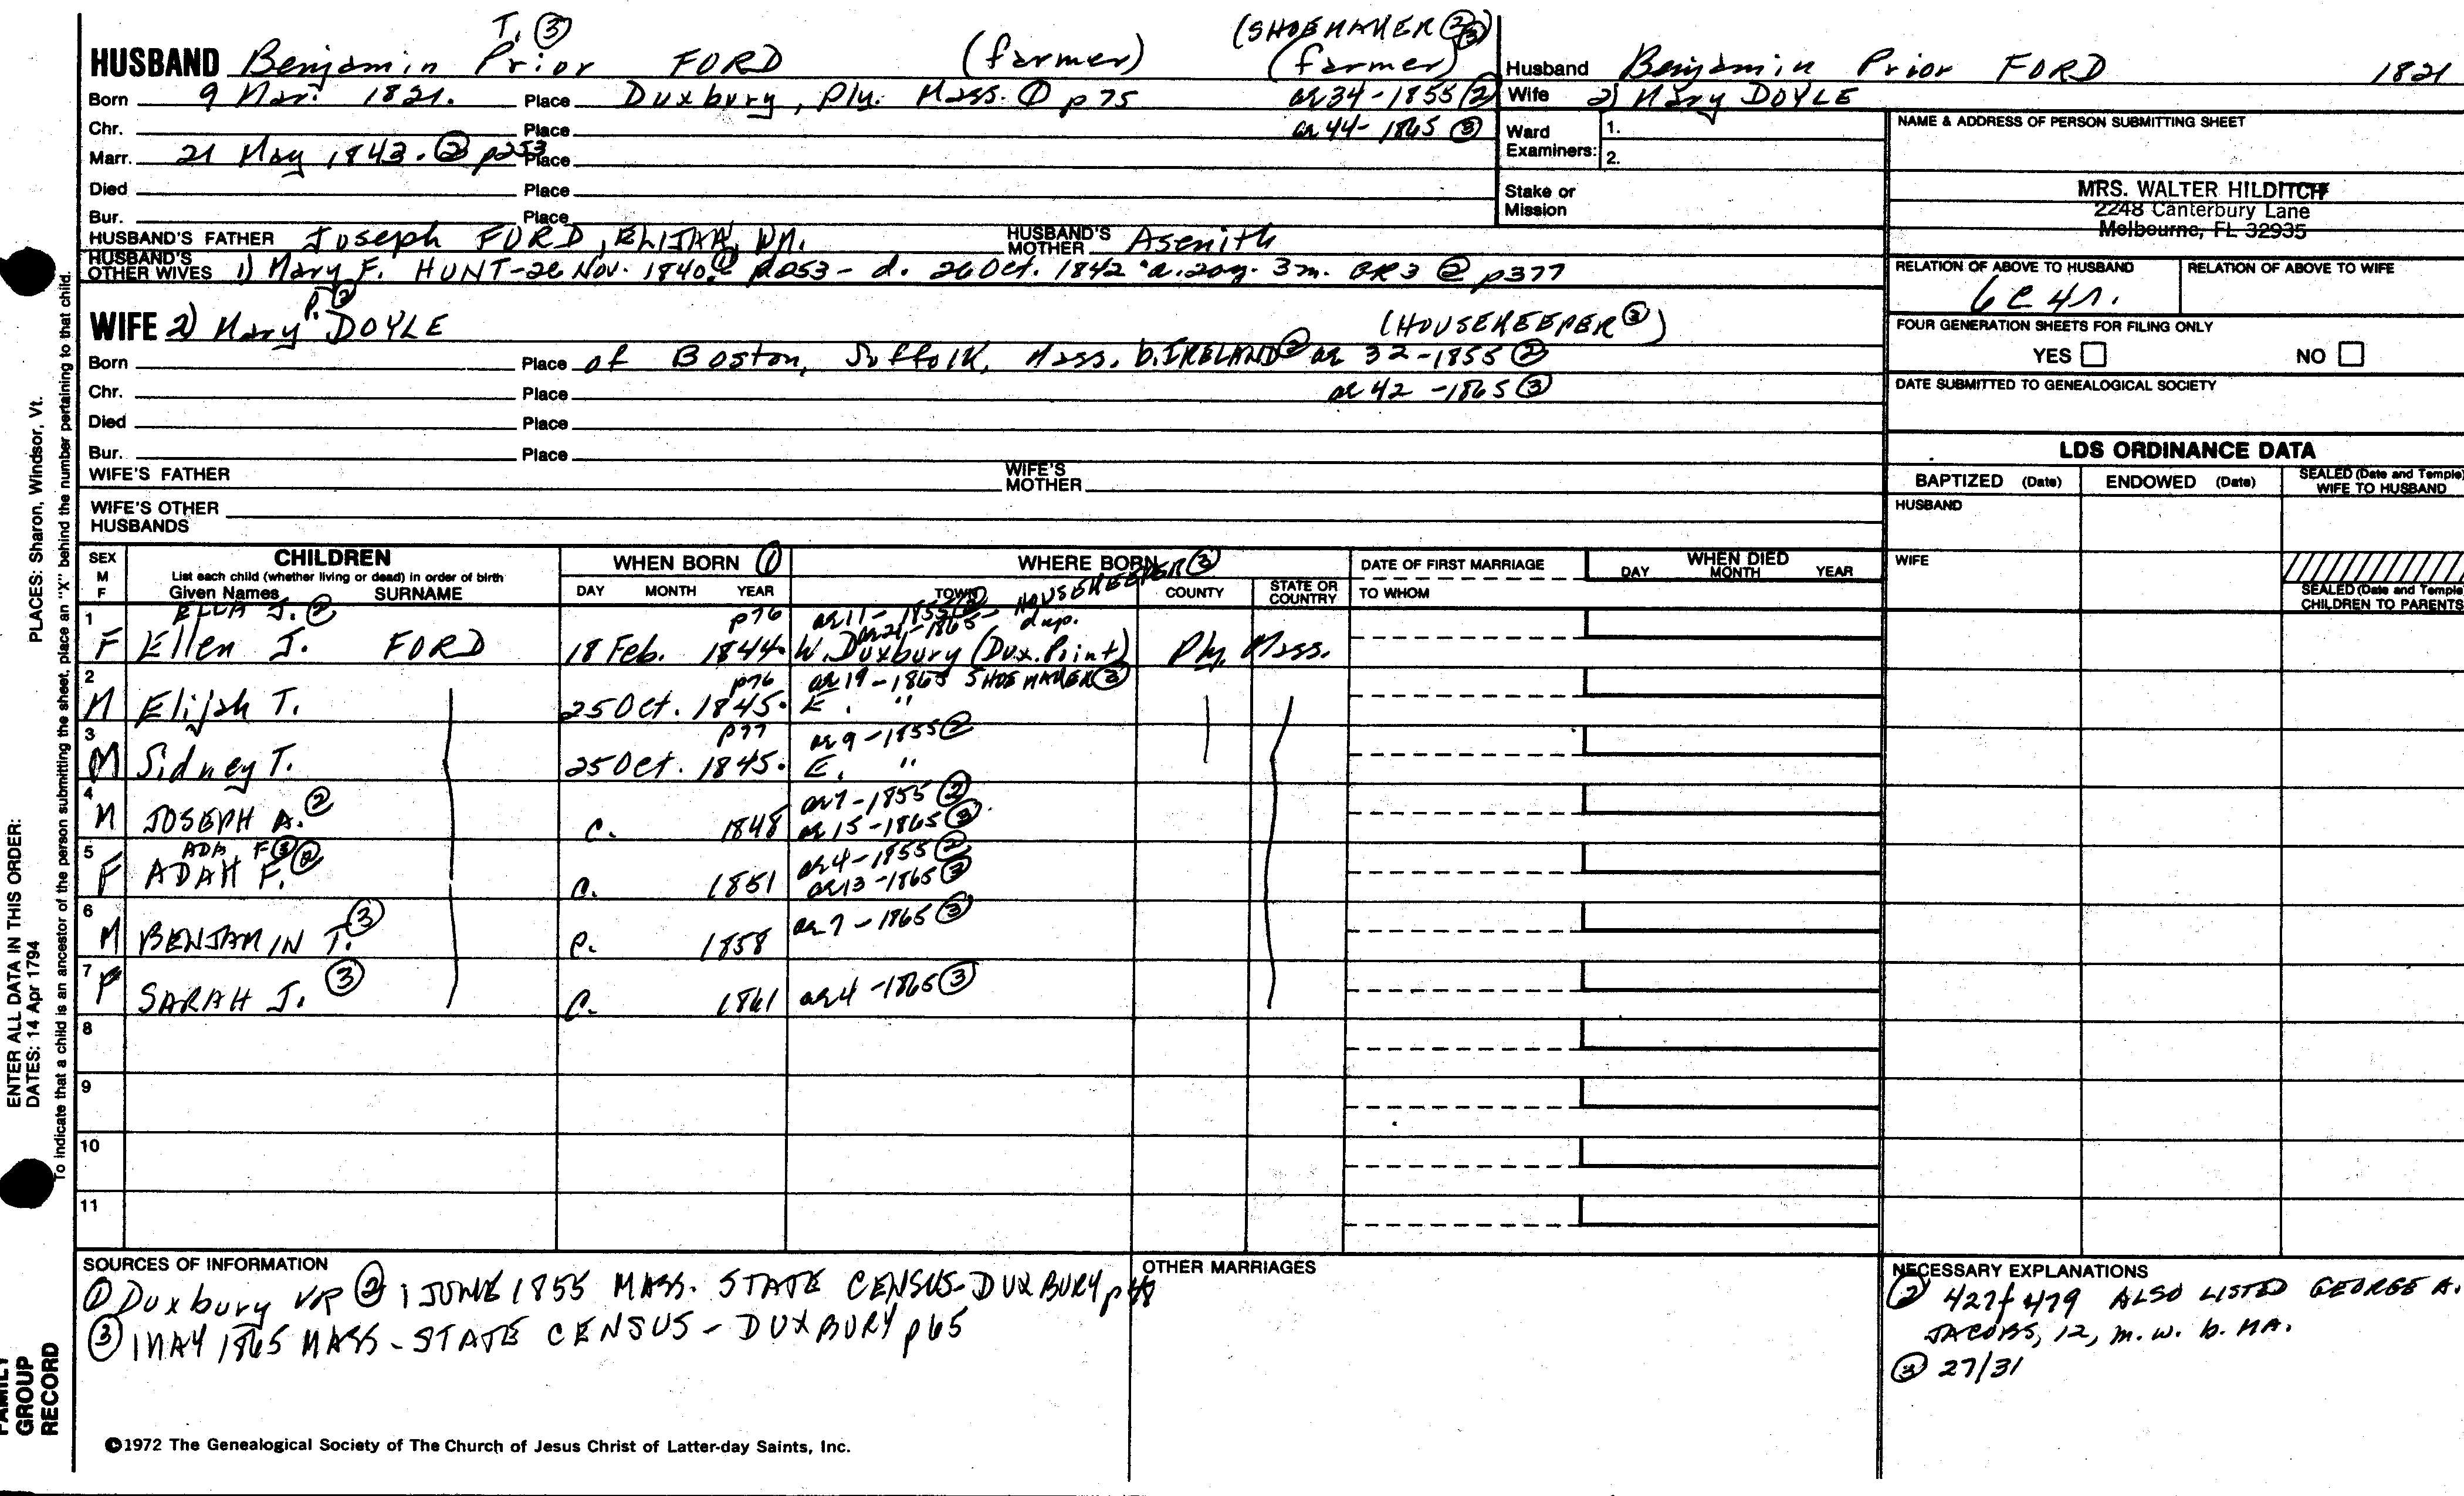 T. ③ (SHOEMAKER ②③)
HUSBAND Benjamin Prior FORD (farmer) (farmer)
Born 9 Mar. 1821. Place Duxbury, Ply. Mass. ① p75 ae 34-1855 ②
Chr. Place ae 44-1865 ③
Marr. 21 May 1843. ② p253 Place
Died Place
Bur. Place
HUSBAND'S FATHER Joseph FORD, ELIJAH, WM. HUSBAND'S MOTHER Asenith
HUSBAND'S OTHER WIVES 1) Mary F. HUNT-26 Nov. 1840. ① p253- d. 26 Oct. 1842 a. 20y. 3m. GR3 ② p377
P. ②
WIFE 2) Mary DOYLE (HOUSEKEEPER ③)
Born Place of Boston, Suffolk, Mass. b. IRELAND ② ae 32-1855 ②
Chr. Place ae 42-1865 ③
Died Place
Bur. Place
WIFE'S FATHER WIFE'S MOTHER
WIFE'S OTHER HUSBANDS
Husband Benjamin Prior FORD 1821
Wife 2) Mary DOYLE
Ward Examiners: 1. 2.
Stake or Mission
NAME & ADDRESS OF PERSON SUBMITTING SHEET
MRS. WALTER HILDITCH
2248 Canterbury Lane
Melbourne, FL 32935
RELATION OF ABOVE TO HUSBAND RELATION OF ABOVE TO WIFE
6C4R.
FOUR GENERATION SHEETS FOR FILING ONLY
YES NO
DATE SUBMITTED TO GENEALOGICAL SOCIETY
LDS ORDINANCE DATA
BAPTIZED (Date) ENDOWED (Date) SEALED (Date and Temple) WIFE TO HUSBAND
HUSBAND
WIFE
SEALED (Date and Temple) CHILDREN TO PARENTS
SEX M F CHILDREN WHEN BORN ① WHERE BORN DATE OF FIRST MARRIAGE WHEN DIED
List each child (whether living or dead) in order of birth
Given Names SURNAME DAY MONTH YEAR TOWN COUNTY STATE OR COUNTRY TO WHOM DAY MONTH YEAR
ELLA J. ② p76 ae 11-1855 ② ae 21-1865- HOUSEKEEPER ③ dup.
1 F Ellen J. FORD 18 Feb. 1844. W. Duxbury (Dux. Print) Ply. Mass.
p76 ae 19-1865 SHOEMAKER ③
2 M Elijah T. 25 Oct. 1845. E. "
p77 ae 9-1855 ②
3 M Sidney T. 25 Oct. 1845. E. "
ae 7-1855 ②
4 M JOSEPH A. ② c. 1848 ae 15-1865 ③
ADA F ③ ae 4-1855 ②
5 F ADAH F. ② c. 1851 ae 13-1865 ③
6 M BENJAMIN T. ③ c. 1858 ae 7-1865 ③
7 F SARAH J. ③ c. 1861 ae 4-1865 ③
8
9
10
11
SOURCES OF INFORMATION
① Duxbury VR ② 1 JUNE 1855 MASS. STATE CENSUS-DUXBURY
③ 1 MAY 1865 MASS-STATE CENSUS-DUXBURY p65
OTHER MARRIAGES
NECESSARY EXPLANATIONS
② 427/479 ALSO LISTED GEORGE A.
JACOBS, 12, m. w. b. MA.
③ 27/31
©1972 The Genealogical Society of The Church of Jesus Christ of Latter-day Saints, Inc.
PLACES: Sharon, Windsor, Vt.
ENTER ALL DATA IN THIS ORDER:
DATES: 14 Apr 1794
To indicate that a child is an ancestor of the person submitting the sheet, place an "X" behind the number pertaining to that child.
FAMILY GROUP RECORD